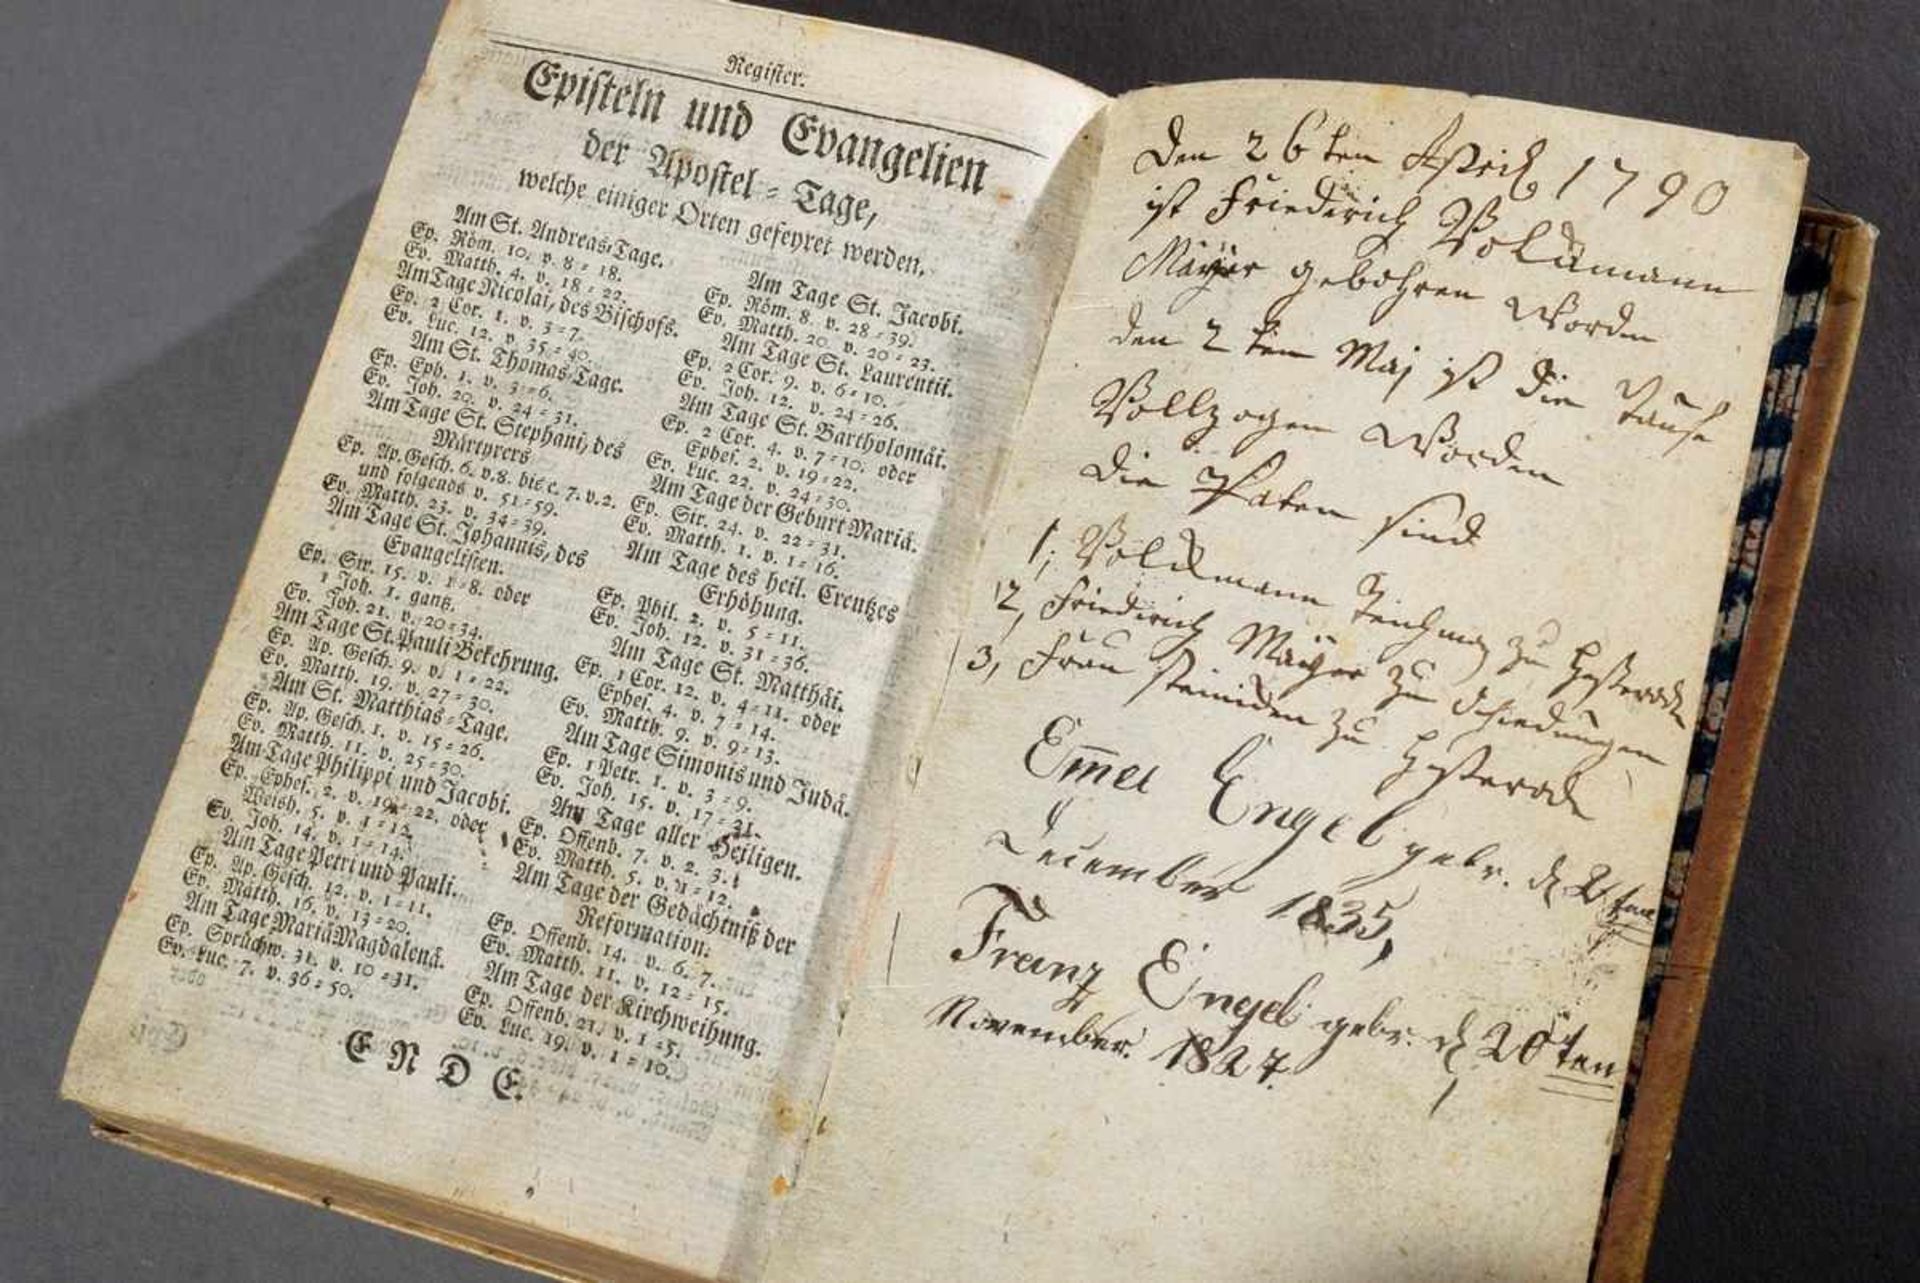 Register.
Episteln und Evangelien
der Apostel=Tage,
welche einiger Orten gefeyret werden.
Am St. Andreas=Tage.
Ep. Röm. 10. v. 8=18.
Ev. Matth. 4. v. 18=22.
Am Tage Nicolai, des Bischofs.
Ep. 2 Cor. 1. v. 3=7.
Ev. Luc. 12. v. 35=40.
Am St. Thomas=Tage.
Ep. Eph. 1. v. 3=6.
Ev. Joh. 20. v. 24=31.
Am Tage St. Stephani, des
Märtyrers
Ep. Ap. Gesch. 6. v. 8. bis c. 7. v. 2.
und folgends v. 51=59.
Ev. Matth. 23. v. 34=39.
Am Tage St. Johannis, des
Evangelisten.
Ep. Sir. 15. v. 1=8. oder
1 Joh. 1. gantz.
Ev. Joh. 21. v. 20=34.
Am Tage St. Pauli Bekehrung.
Ep. Ap. Gesch. 9. v. 1=22.
Ev. Matth. 19. v. 27=30.
Am St. Matthias=Tage.
Ep. Ap. Gesch. 1. v. 15=26.
Ev. Matth. 11. v. 25=30.
Am Tage Philippi und Jacobi.
Ep. Ephes. 2. v. 19=22. oder
Weish. 5. v. 1=12.
Ev. Joh. 14. v. 1=14.
Am Tage Petri und Pauli.
Ep. Ap. Gesch. 12. v. 1=11.
Ev. Matth. 16. v. 13=20.
Am Tage Mariä Magdalenä.
Ep. Sprüchw. 31. v. 10=31.
Ev. Luc. 7. v. 36=50.
Am Tage St. Jacobi.
Ep. Röm. 8. v. 28=39.
Ev. Matth. 20. v. 20=23.
Am Tage St. Laurentii.
Ep. 2 Cor. 9. v. 6=10.
Ev. Joh. 12. v. 24=26.
Am Tage St. Bartholomäi.
Ep. 2 Cor. 4. v. 7=10. oder
Ephes. 2. v. 19=22.
Ev. Luc. 22. v. 24=30.
Am Tage der Geburt Mariä.
Ep. Sir. 24. v. 22=31.
Ev. Matth. 1. v. 1=16.
Am Tage des heil. Creutzes
Erhöhung.
Ep. Phil. 2. v. 5=11.
Ev. Joh. 12. v. 31=36.
Am Tage St. Matthäi.
Ep. 1 Cor. 12. v. 4=11. oder
Ephes. 4. v. 7=14.
Ev. Matth. 9. v. 9=13.
Am Tage Simonis und Judä.
Ep. 1 Petr. 1. v. 3=9.
Ev. Joh. 15. v. 17=21.
Am Tage aller Heiligen.
Ep. Offenb. 7. v. 2. 3.
Ev. Matth. 5. v. 1=12.
Am Tage der Gedächtniß der
Reformation.
Ep. Offenb. 14. v. 6. 7.
Ev. Matth. 11. v. 12=15.
Am Tage der Kirchweihung.
Ep. Offenb. 21. v. 1=5.
Ev. Luc. 19. v. 1=10.
ENDE.
Den 26ten April 1790
ist Friederich Volckmann
Mäÿer gebohren Worden
den 2ten Maj ist die Taufe
Vollzogen Worden
Die Paten sind
1, Volckmann zu
2, Friederich Mäÿer zu Schiedungen
3, Frau zu
Emel Engel gebr. d 2ten
December 1835,
Franz Engel gebr. d 20ten
November. 1827.